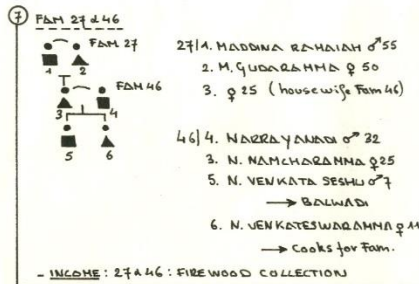 7 FAM 27 & 46
FAM 27
1 2
FAM 46
3 4
5 6
27/1. MADDINA RAMAIAH ♂ 55
2. M. GUDARAMMA ♀ 50
3. ♀ 25 (housewife Fam 46)
46/4. NARRAYANADI ♂ 32
3. N. NAMCHARAMMA ♀ 25
5. N. VENKATA SESHU ♂ 7
→ BALWADI
6. N. VENKATESWARAMMA ♀ 11
→ Cooks for Fam.
- INCOME: 27 & 46: FIREWOOD COLLECTION